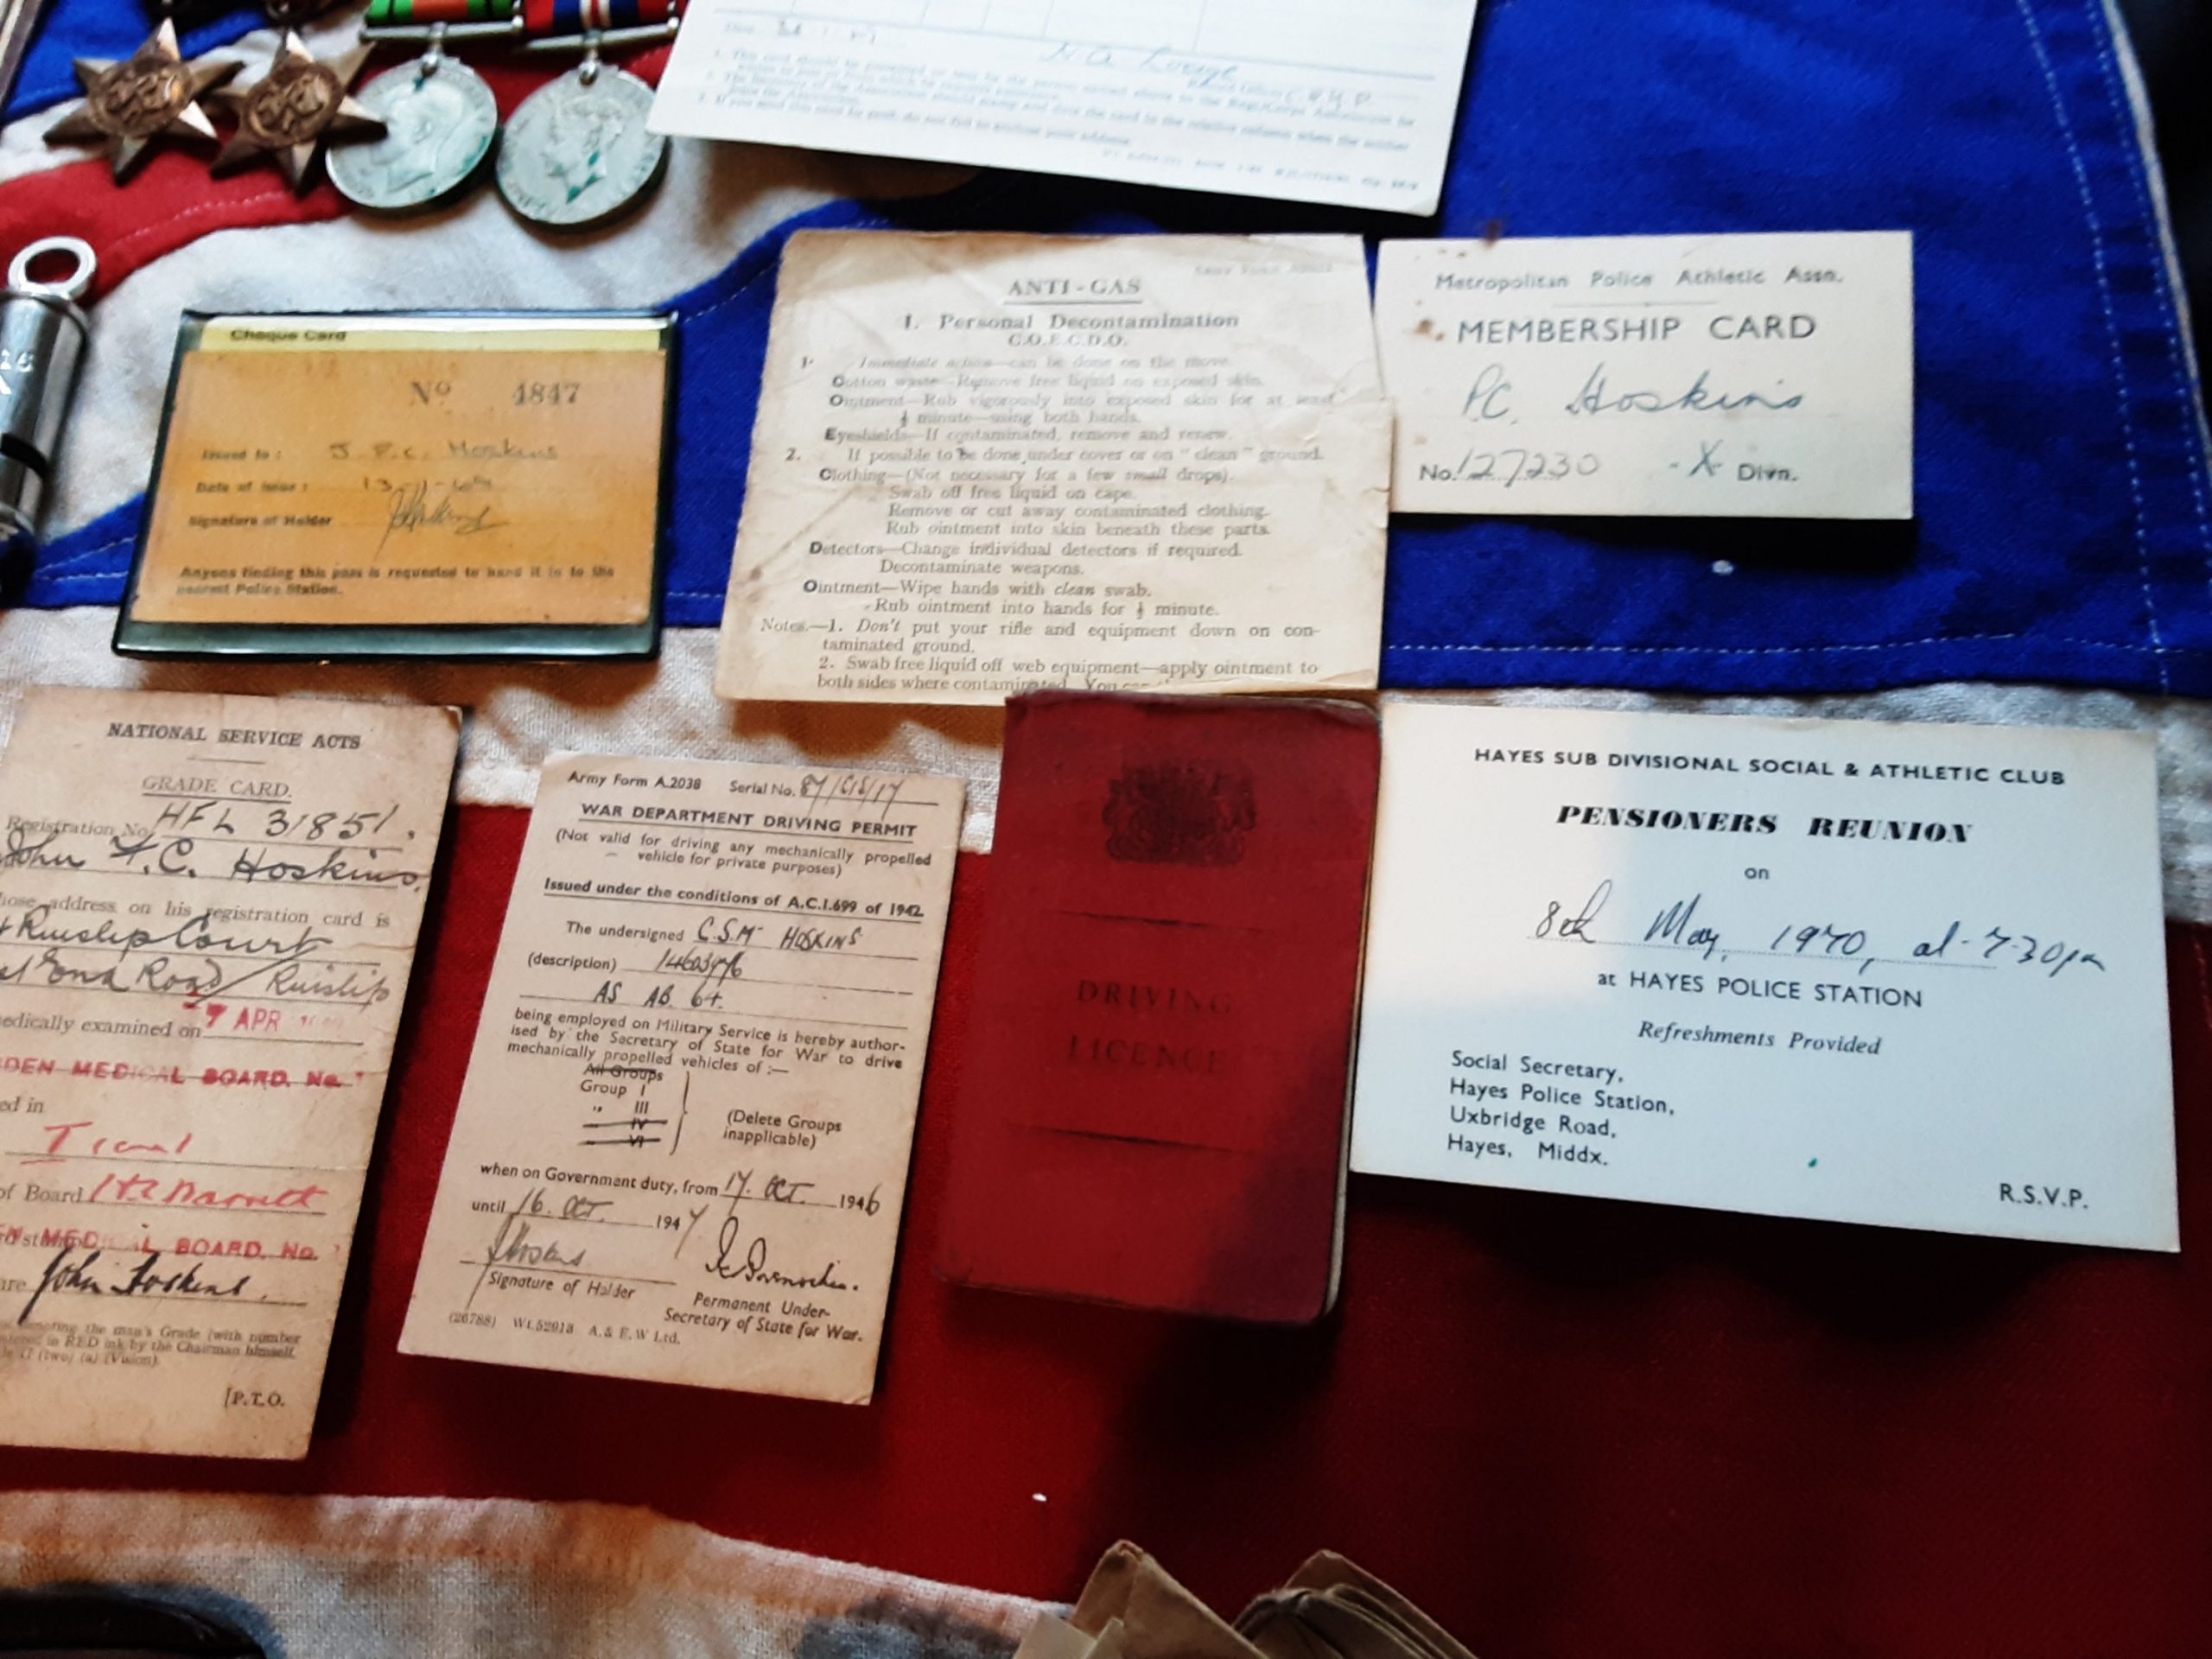 N.A. Lodge
1. This card should be
2. The Secretary of the Association should stamp and date the card in the relative column when the soldier
joins the Association.
3. If you send this card by post, do not fail to enclose your address.
Cheque Card
No 4847
Issued to: J. F. C. Hoskins
Date of issue:
Signature of Holder
Anyone finding this pass is requested to hand it in to the
nearest Police Station.
ANTI-GAS
1. Personal Decontamination
C.O.E.C.D.O.
1. Immediate action—can be done on the move.
Cotton waste—Remove free liquid on exposed skin.
Ointment—Rub vigorously into exposed skin for at least
½ minute—using both hands.
Eyeshields—If contaminated, remove and renew.
2. If possible to be done under cover or on "clean" ground.
Clothing—(Not necessary for a few small drops).
Swab off free liquid on cape.
Remove or cut away contaminated clothing.
Rub ointment into skin beneath these parts.
Detectors—Change individual detectors if required.
Decontaminate weapons.
Ointment—Wipe hands with clean swab.
Rub ointment into hands for ½ minute.
Notes.—1. Don't put your rifle and equipment down on con-
taminated ground.
2. Swab free liquid off web equipment—apply ointment to
both sides where contaminated. You can
Metropolitan Police Athletic Assn.
MEMBERSHIP CARD
PC. Hoskins
No. 127230 -X- Divn.
NATIONAL SERVICE ACTS
GRADE CARD.
Registration No. HFL 31851.
John F.C. Hoskins.
hose address on his registration card is
Ruislip Court
End Road, Ruislip
edically examined on 7 APR
DEN MEDICAL BOARD. No.
ed in
I
of Board
MEDICAL BOARD. No.
John Hoskins.
the man's Grade (with number
in RED ink by the Chairman himself.
(two) (a) (Vision).
[P.T.O.
Army Form A.2038 Serial No. 87/
WAR DEPARTMENT DRIVING PERMIT
(Not valid for driving any mechanically propelled
vehicle for private purposes)
Issued under the conditions of A.C.I.699 of 1942
The undersigned C.S.M. HOSKINS
(description)
AS AB. 64.
being employed on Military Service is hereby author-
ised by the Secretary of State for War to drive
mechanically propelled vehicles of :—
All Groups
Group I
„ III
IV
VI
(Delete Groups
inapplicable)
when on Government duty, from 17. OCT. 1946
until 16. OCT. 1947
JHoskins
Signature of Holder
Permanent Under-
Secretary of State for War.
(26788) Wt.52918 A. & E.W Ltd.
DRIVING
LICENCE
HAYES SUB DIVISIONAL SOCIAL & ATHLETIC CLUB
PENSIONERS REUNION
on
8th May, 1970, at 7-30pm
at HAYES POLICE STATION
Refreshments Provided
Social Secretary,
Hayes Police Station,
Uxbridge Road,
Hayes, Middx.
R.S.V.P.